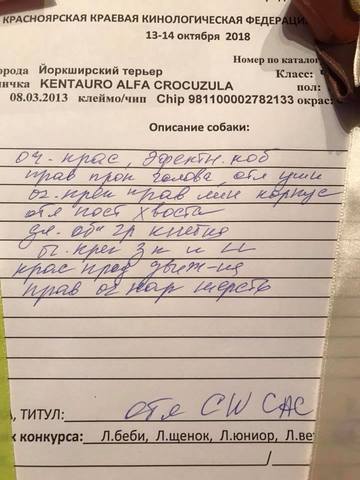 КРАСНОЯРСКАЯ КРАЕВАЯ КИНОЛОГИЧЕСКАЯ ФЕДЕРАЦИ
13-14 октября 2018
Номер по каталог
орода Йоркширский терьер Класс:
ичка KENTAURO ALFA CROCUZULA пол:
08.03.2013 клеймо/чип Chip 981100002782133 окрас:
Описание собаки:
оч. крас, эфектн. коб
прав проп голова отл уши
оч. креп прав лин корпус
отл пост хвоста
гр клетки
креп З к и
крас прод движ-ия
прав оч хар шерсть
, ТИТУЛ: отл CW CAC
к конкурса: Л.беби, Л.щенок, Л.юниор, Л.ве
/